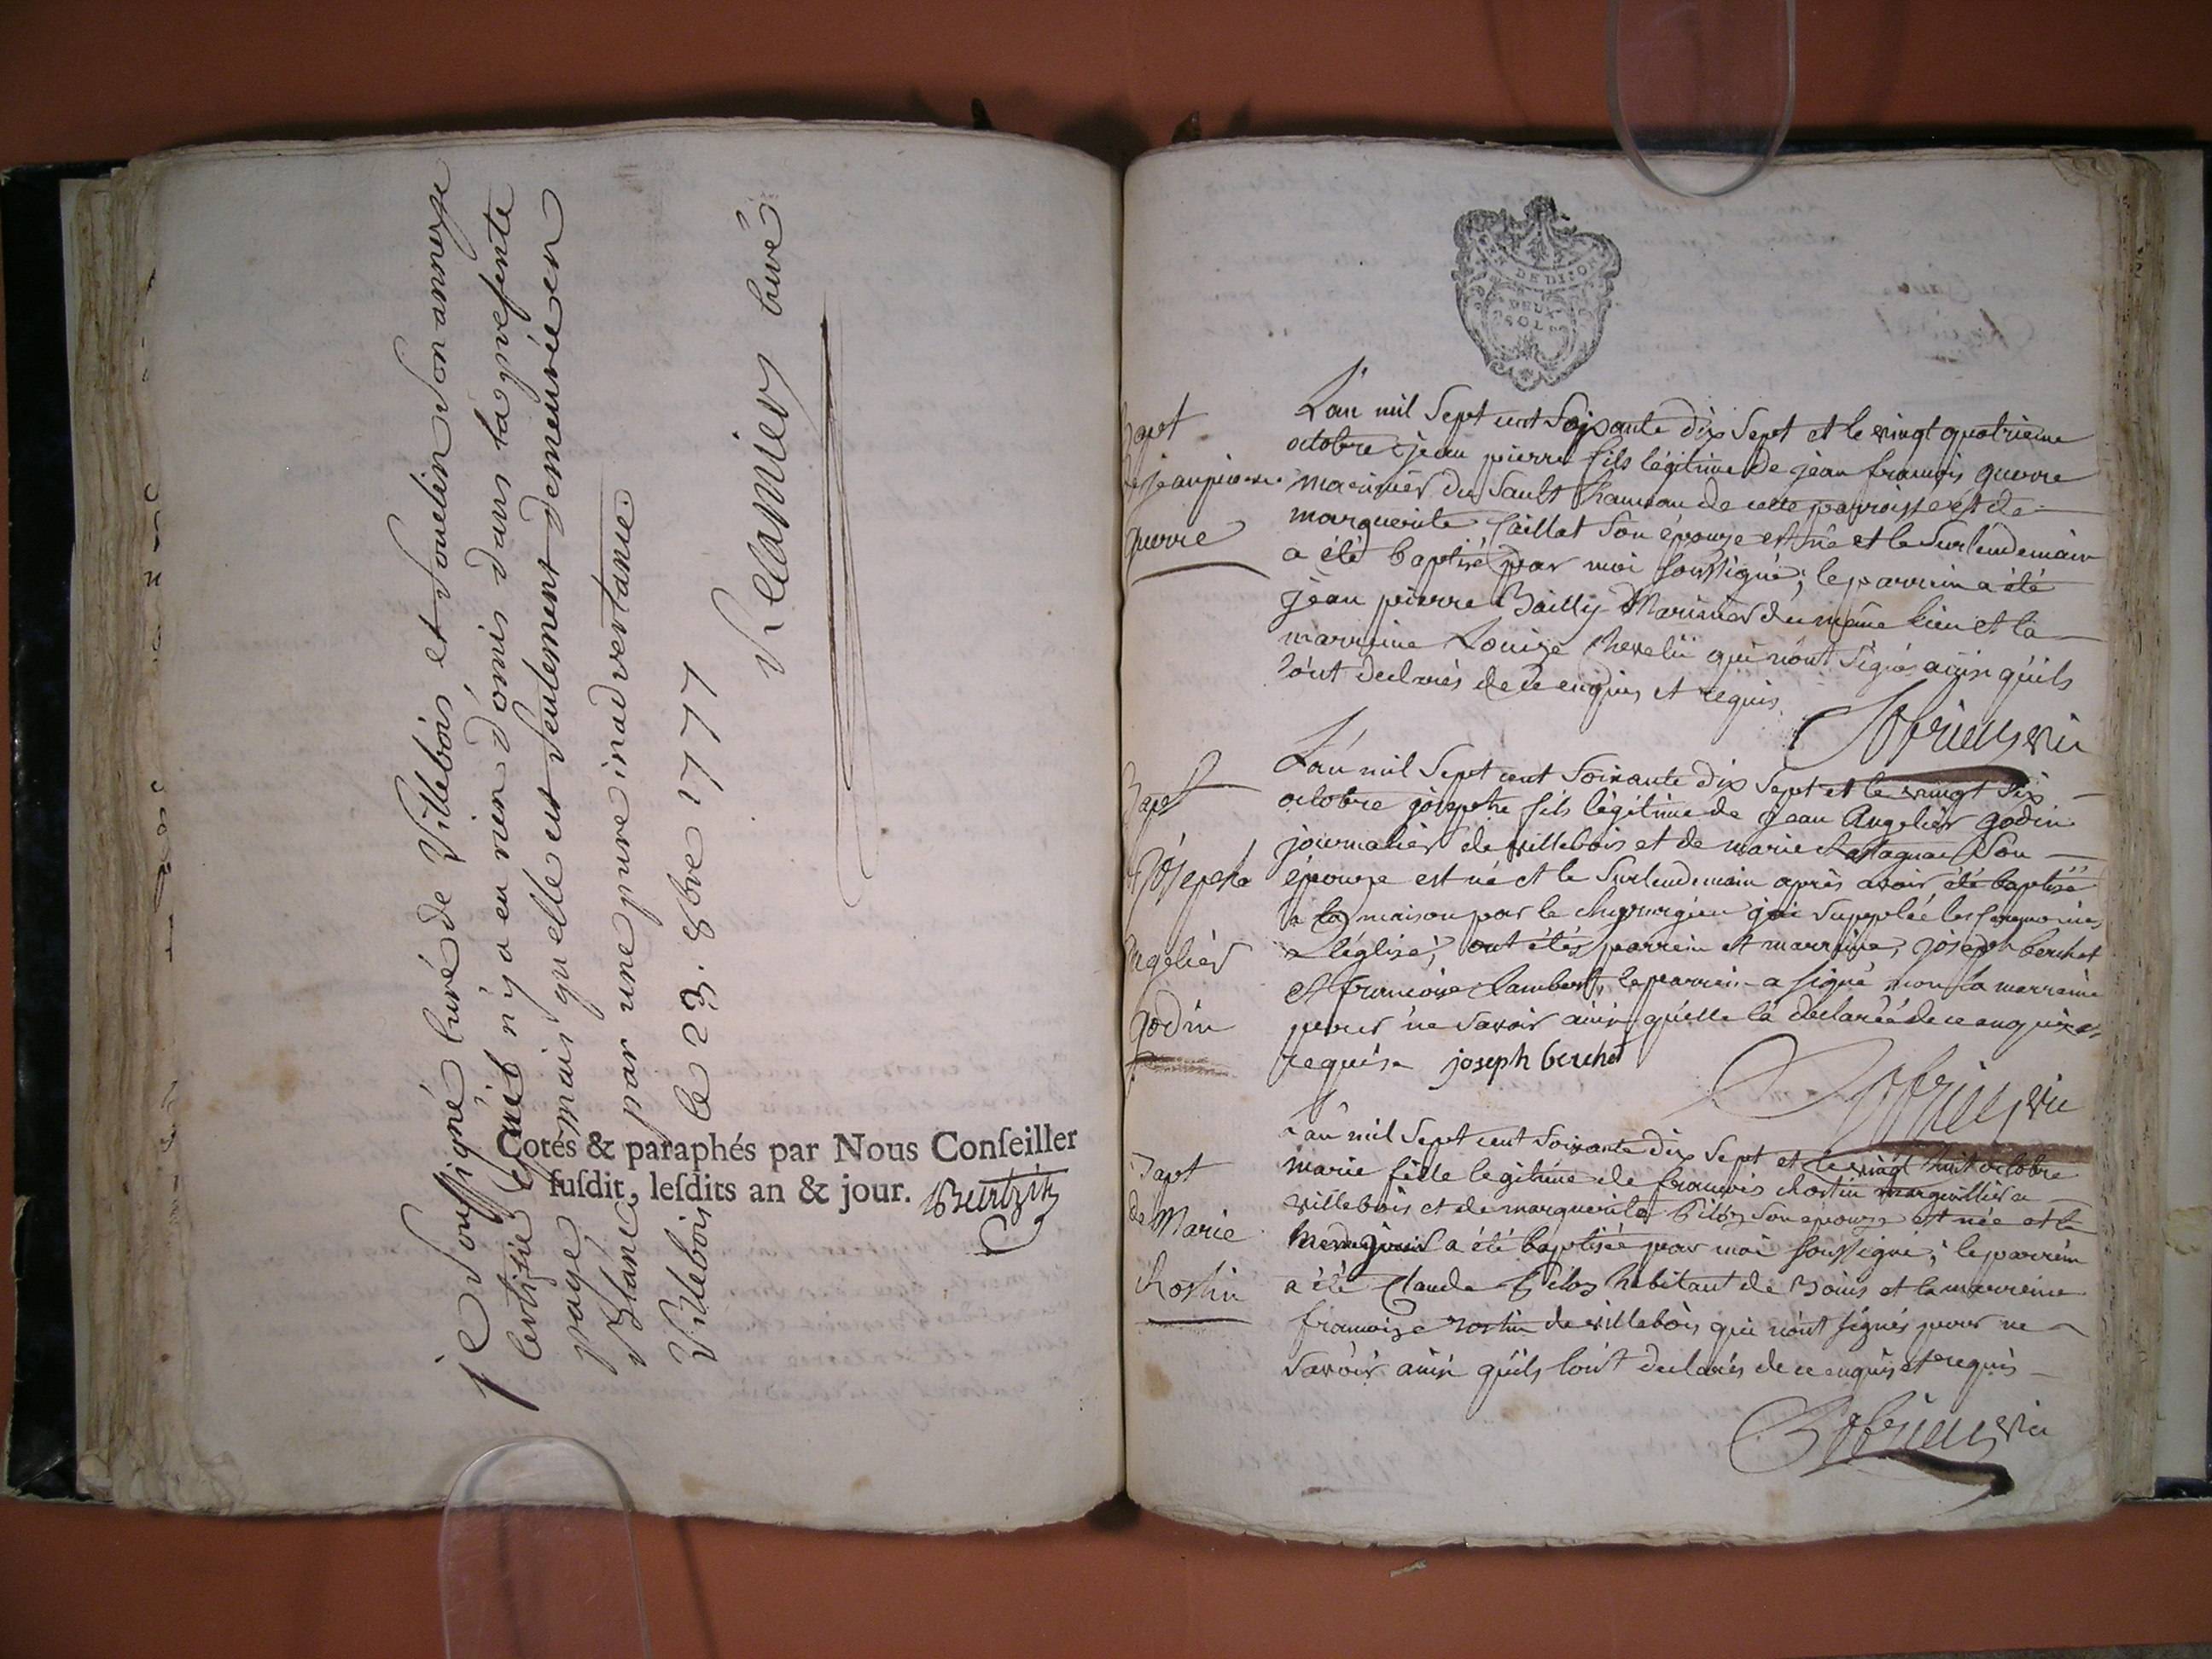 je soussigné curé de Villebois et Souclin son annexe
certifie qu'il n'y a eu rien d'omis dans la presente
page, mais qu'elle est seulement demeurée en
Blanc par une pure inadvertance.
Villebois le 23. 8bre 1777
curé
Cotés & paraphés par Nous Conſeiller
ſuſdit, leſdits an & jour.
DE DIJON
DEUX
SOLS
Bapt
de jean pierre
guerre
L'an mil sept cent soixante dix sept et le vingt quatrieme
octobre jean pierre fils légitime de jean francois guerre
marinier du Sault hameau de cette parroisse et de
marguerite Caillat son épouse est né et le surlendemain
a été baptisé par moi soussigné; le parrein a été
jean pierre Bailly Marinier du même lieu et la
marreine Louise Chevelu qui n'ont signés ainsi qu'ils
l'ont declarés de ce enquis et requis
vic
Bapt
de joseph
angelier
godin
L'an mil sept cent soixante dix sept et le vingt six
octobre joseph fils légitime de jean Angelier godin
journalier de villebois et de marie son
épouse est né et le surlendemain après avoir été baptisé
a la maison par le chyrurgien j'ai suppléé les ceremonies
a l'église; ont étés parrein et marreine, joseph berchet
et francoise Lambert, le parrein a signé non la marreine
pour ne savoir ainsi qu'elle l'a declaréé de ce enquise et
requise joseph berchet
vic
Bapt
de Marie
Rostin
L'an mil sept cent soixante dix sept et le vingt huit octobre
marie fille legitime de francois Rostin marguillier a
villebois et de marguerite son épouse est née et le
meme jour a été baptisée par moi soussigné; le parrein
a été Claude habitant de Bouis et la marreine
francoise rostin de villebois qui n'ont signés pour ne
savoir ainsi qu'ils l'ont declarés de ce enquis et requis
vic